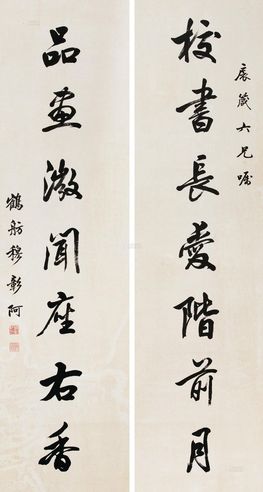 辰箴六兄嘱
校書長愛階前月
品畫微聞座右香
鶴舫穆彰阿